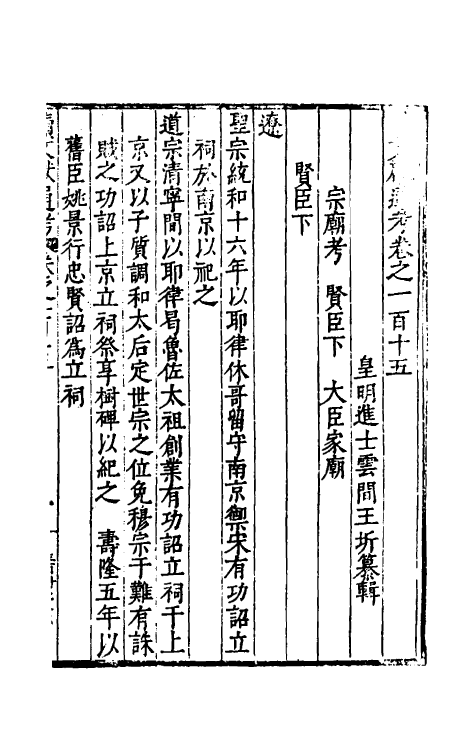 文獻通考卷之一百十五
皇明進士雲間王圻纂輯
宗廟考　賢臣下　大臣家廟
賢臣下
遼
聖宗統和十六年以耶律休哥留守南京禦宋有功詔立
祠於南京以祀之
道宗清寧間以耶律曷魯佐太祖創業有功詔立祠于上
京又以子質調和太后定世宗之位免穆宗于難有誅
賊之功詔上京立祠祭享樹碑以紀之　壽隆五年以
舊臣姚景行忠賢詔為立祠
續文獻通考